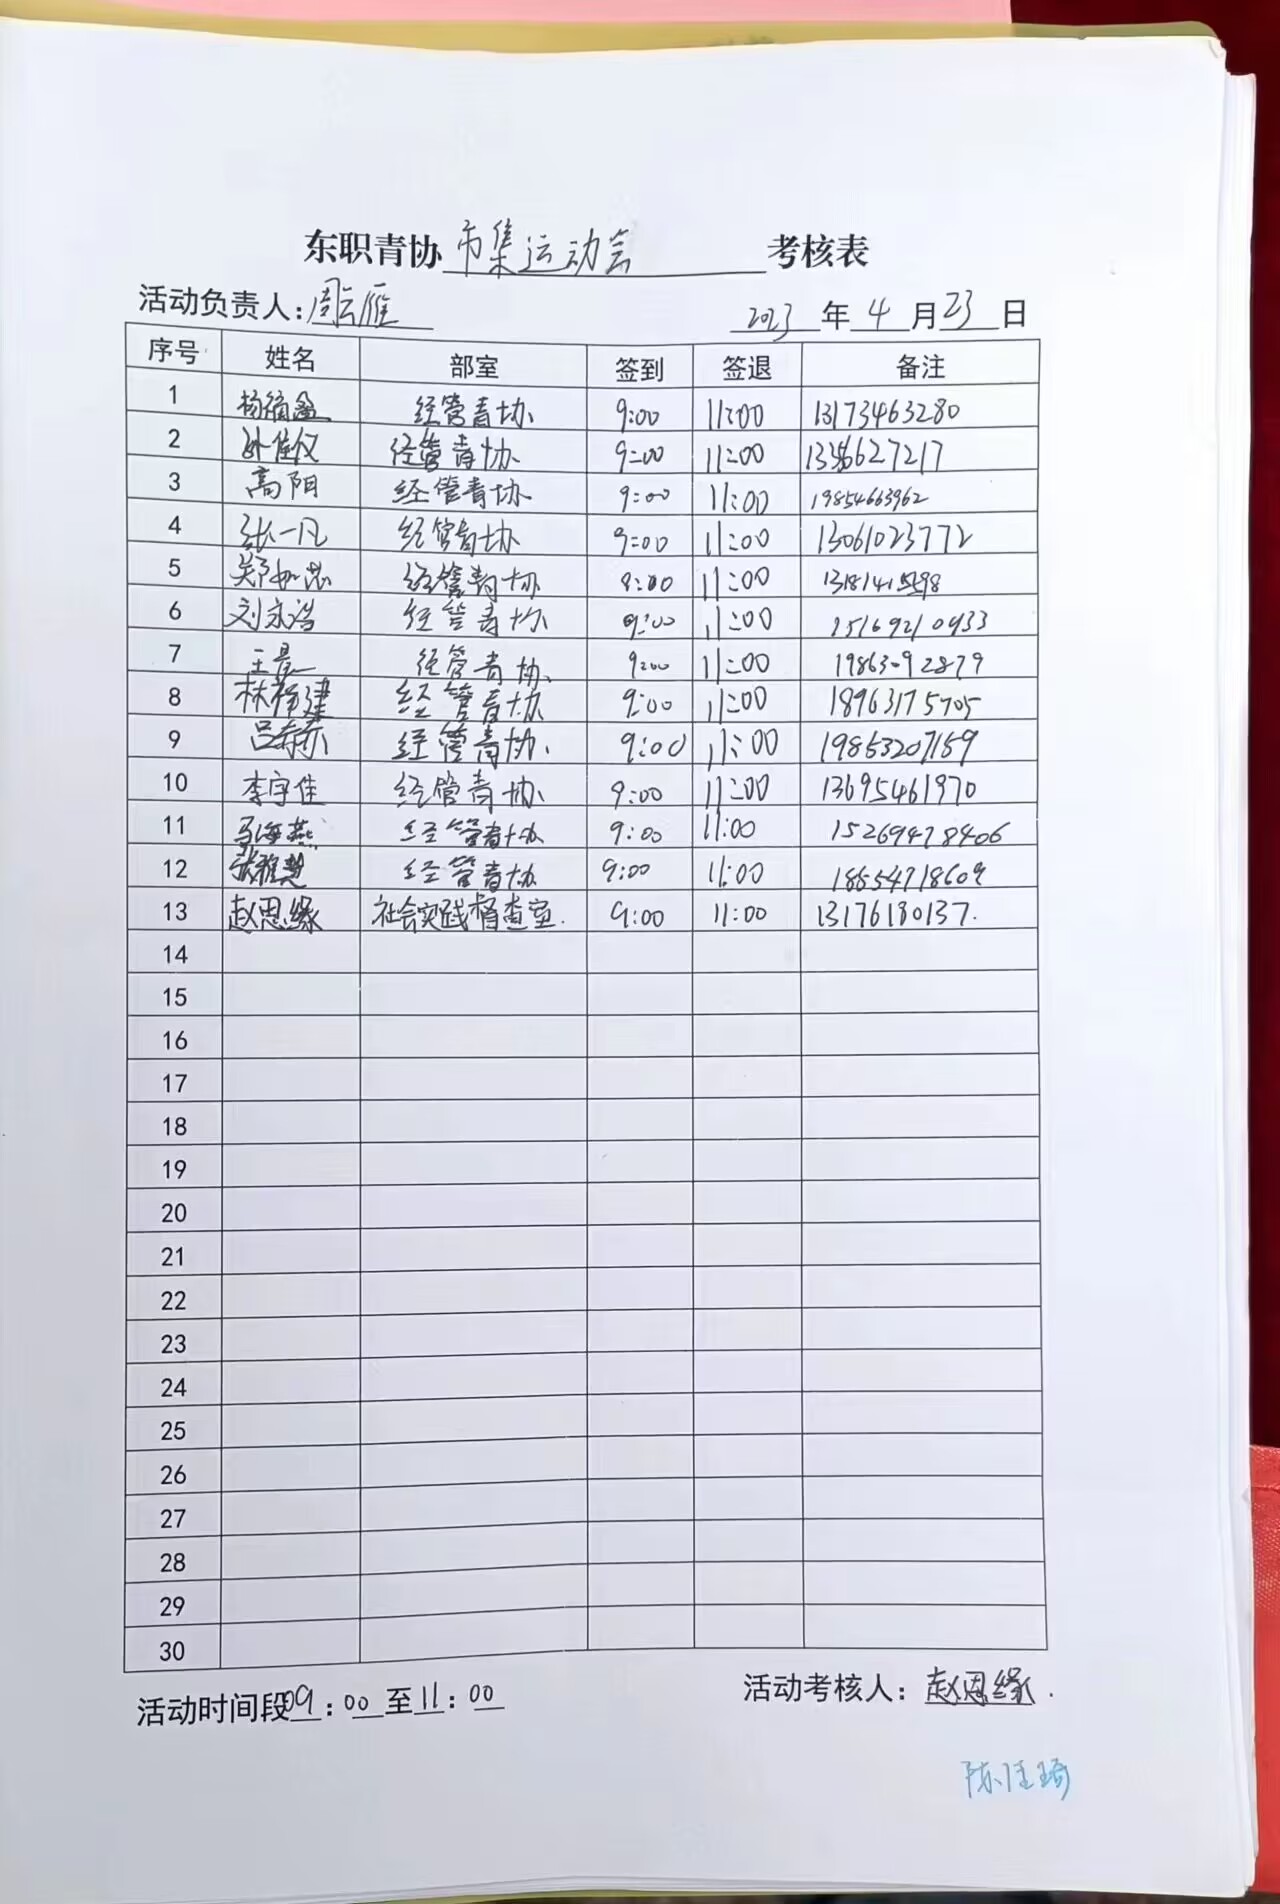 东职青协 市集运动会 考核表
活动负责人：周云雁 2023 年 4 月 23 日
序号 姓名 部室 签到 签退 备注
1 经管青协 9:00 11:00 13173463280
2 孙佳仪 经管青协 9:00 11:00
3 高阳 经管青协 9:00 11:00 19854663962
4 张一凡 经管青协 9:00 11:00 13061023772
5 经管青协 9:00 11:00
6 刘永浩 经管青协 9:00 11:00 15169210933
7 经管青协 9:00 11:00 19863092879
8 林福建 经管青协 9:00 11:00 18963175705
9 经管青协 9:00 11:00 19853207159
10 李宇佳 经管青协 9:00 11:00 13695461970
11 马海燕 经管青协 9:00 11:00 15269478406
12 张雅楚 经管青协 9:00 11:00 18854718609
13 赵思缘 社会实践督查室. 9:00 11:00 13176180137.
14
15
16
17
18
19
20
21
22
23
24
25
26
27
28
29
30
活动时间段09：00至11：00 活动考核人：赵思缘.
陈佳琦